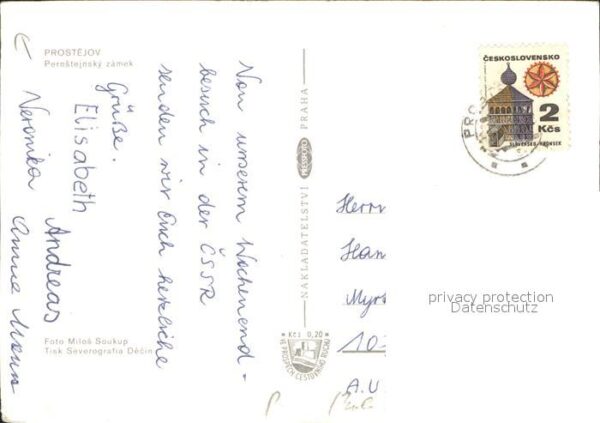 PROSTĚJOV
Pernštejnský zámek
Von unserem Wochenend-
besuch in der ČSSR
senden wir Euch herzliche
Grüße.
Elisabeth
Andreas
Veronika
Foto Miloš Soukup
Tisk Severografia Děčín
NAKLADATELSTVÍ PRESSFOTO PRAHA
* Kčs 0,20 *
VE PROSPĚCH CESTOVNÍHO RUCHU
ČESKOSLOVENSKO
2
Kčs
SLOVENSKO-HRONSEK
PRO
Herrn
Han
Myrt
10
A.U
privacy protection
Datenschutz